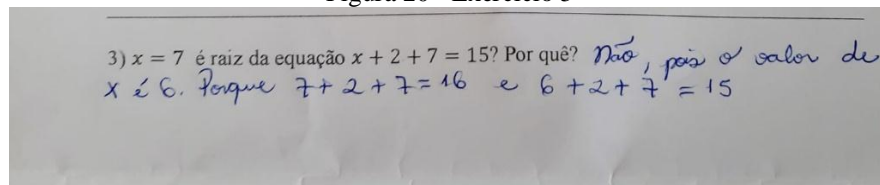 3) x = 7 é raiz da equação x + 2 + 7 = 15? Por quê? Não, pois o valor de
x é 6. Porque 7 + 2 + 7 = 16 e 6 + 2 + 7 = 15